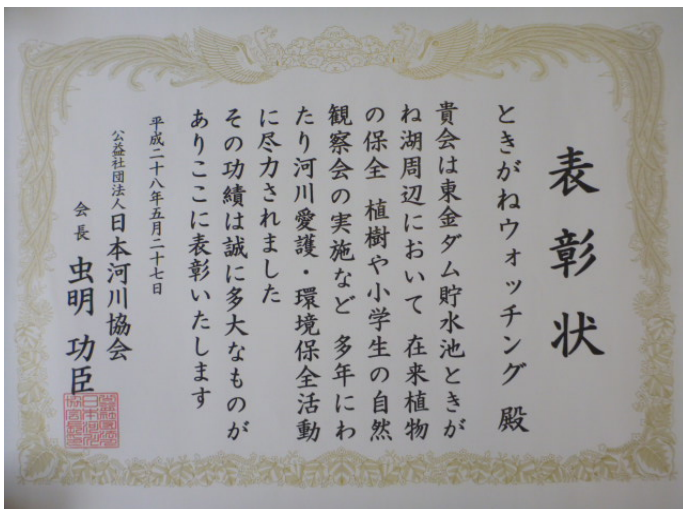 表彰状
ときがねウォッチング 殿
貴会は東金ダム貯水池ときが
ね湖周辺において 在来植物
の保全 植樹や小学生の自然
観察会の実施など 多年にわ
たり河川愛護・環境保全活動
に尽力されました
その功績は誠に多大なものが
ありここに表彰いたします
平成二十八年五月二十七日
公益社団法人日本河川協会
会長 虫明 功臣